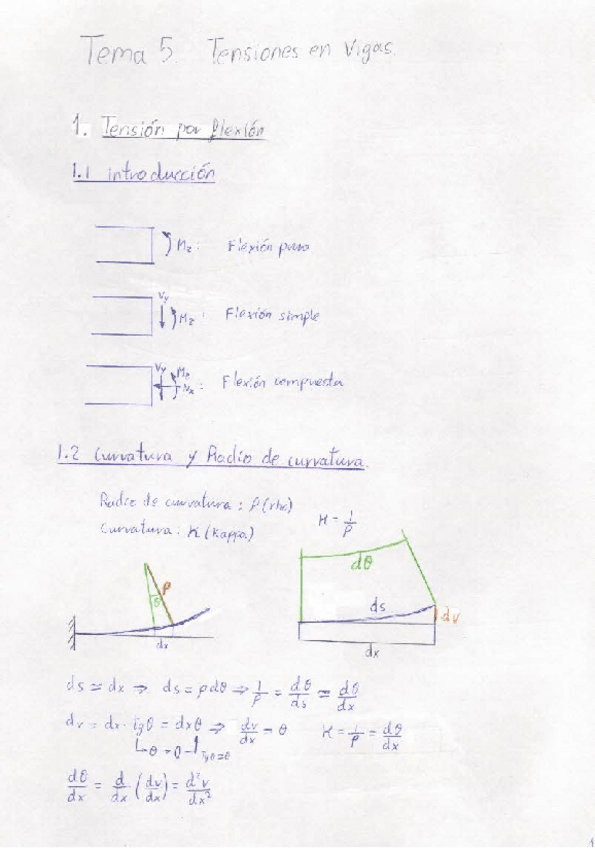 Tema 5. Tensiones en Vigas.
1. Tensión por flexión
1.1 Introducción
Mz: Flexión pura
Vy
Mz: Flexión simple
Vy Mz
Nx: Flexión compuesta
1.2 Curvatura y Radio de curvatura.
Radio de curvatura: ρ (rho)
Curvatura: K (Kappa)
K = 1/ρ
θ ρ
dx
dθ
ds
dv
dx
ds ≃ dx ⇒ ds = ρ dθ ⇒ 1/ρ = dθ/ds ≃ dθ/dx
dv = dx · Tg θ = dx θ ⇒ dv/dx = θ K = 1/ρ = dθ/dx
θ → 0 → Tg θ = θ
dθ/dx = d/dx · (dv/dx) = d²v/dx²
1